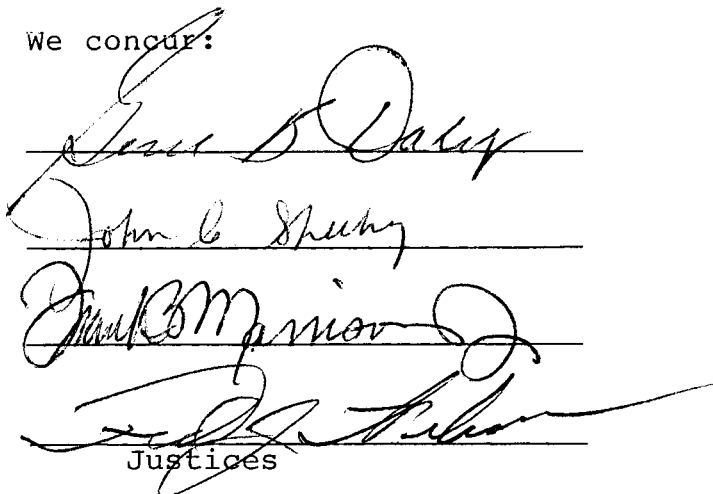 We concur:
Gene B Daly
John C Sheehy
Frank B Morrison Jr
Fred J Weber
Justices